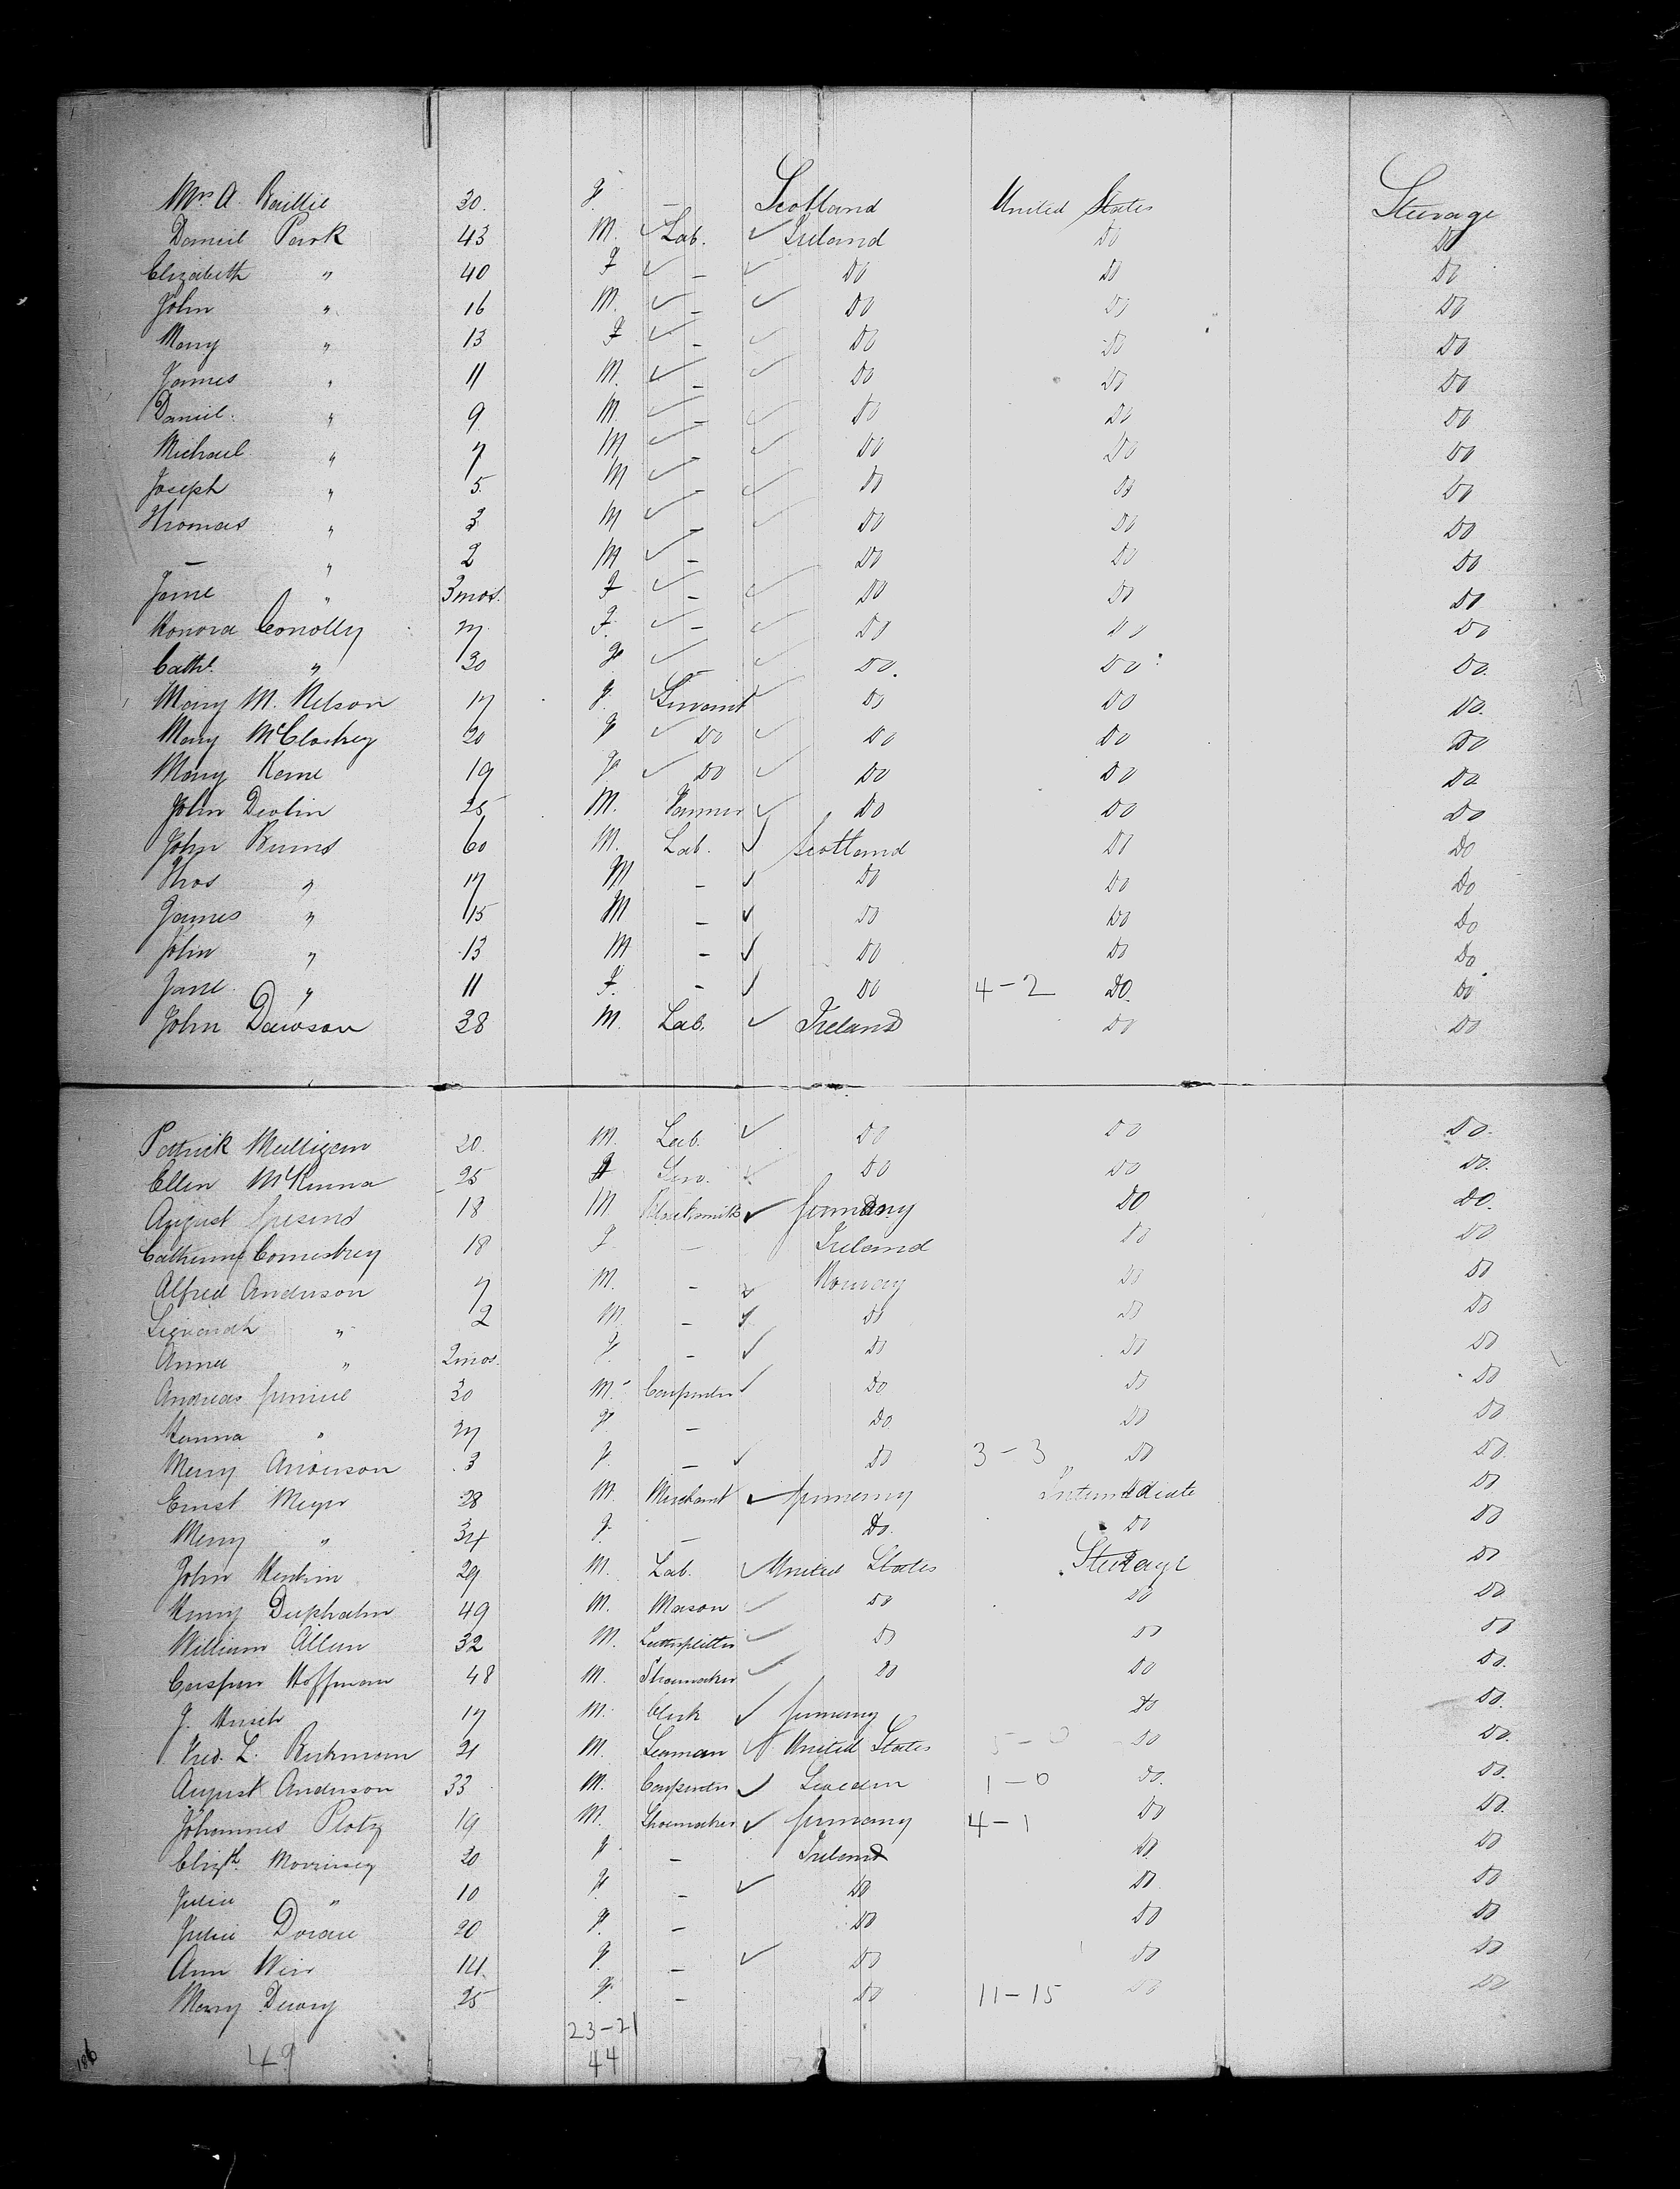 Mrs A. Baillie 30. F — Scotland United States Steerage
Daniel Park 43 M. Lab. Ireland Do Do
Elizabeth " 40 F — Do Do Do
John " 16 M. — Do Do Do
Mary " 13 F — Do Do Do
James " 11 M. — Do Do Do
Daniel " 9 M. — Do Do Do
Michael " 7 M — Do Do Do
Joseph " 5 M — Do Do Do
Thomas " 3 M — Do Do Do
— " 2 M — Do Do Do
Jane " 3 mos. F — Do Do Do
Honora Conolly 27 F. — Do Do Do
Cathe. " 30 F — Do. Do Do.
Mary M. Nelson 17 F. Servant Do Do Do.
Mary McCloskey 20 F Do Do Do Do
Mary Kane 19 F Do Do Do Do
John Devlin 25 M. Farmer Do Do Do
John Burns 60 M. Lab. Scotland Do Do
Thos " 17 M — Do Do Do
James " 15 M — Do Do Do
John " 13 M — Do Do Do
Jane " 11 F. — Do 4-2 Do. Do
John Dawson 38 M. Lab. Ireland Do Do
Patrick Mulligan 20. M. Lab. Do Do Do.
Ellen McKenna 25 F Serv. Do Do Do.
August 18 M Blacksmith Germany Do Do.
Catherine 18 F — Ireland Do Do
Alfred Anderson 7 M. — Norway Do Do
" 2 M. — Do Do Do
Anna " 2 mos. F. — Do Do Do
Andreas 30 M. Carpenter Do Do Do
Hanna " 27 F — Do Do Do
Mary Anderson 3 F. — Do 3-3 Do Do.
Ernst Meyer 28 M. Merchant Germany Intermediate Do
Mary " 34 F — Do. Do Do
John 29 M. Lab. United States Steerage Do
Henry 49 M. Mason Do Do Do
William Allen 32 M. Do Do Do
Caspar Hoffman 48 M. Shoemaker Do Do Do.
J. Hirsch 17 M. Clerk Germany Do Do.
Fred. L. 21 M. Seaman United States 5-0 Do Do.
August Anderson 33 M. Carpenter Sweden 1-0 Do. Do.
Johannes Plotz 19 M. Shoemaker Germany 4-1 Do Do.
Elizth. Morrisey 20 F — Ireland Do. Do
Julia " 10 F — Do Do. Do
Julia Doran 20 F. — Do Do Do
Ann Weir 14 F. — Do Do Do
Mary 25 F. — Do 11-15 Do Do
23-21
49 44
186